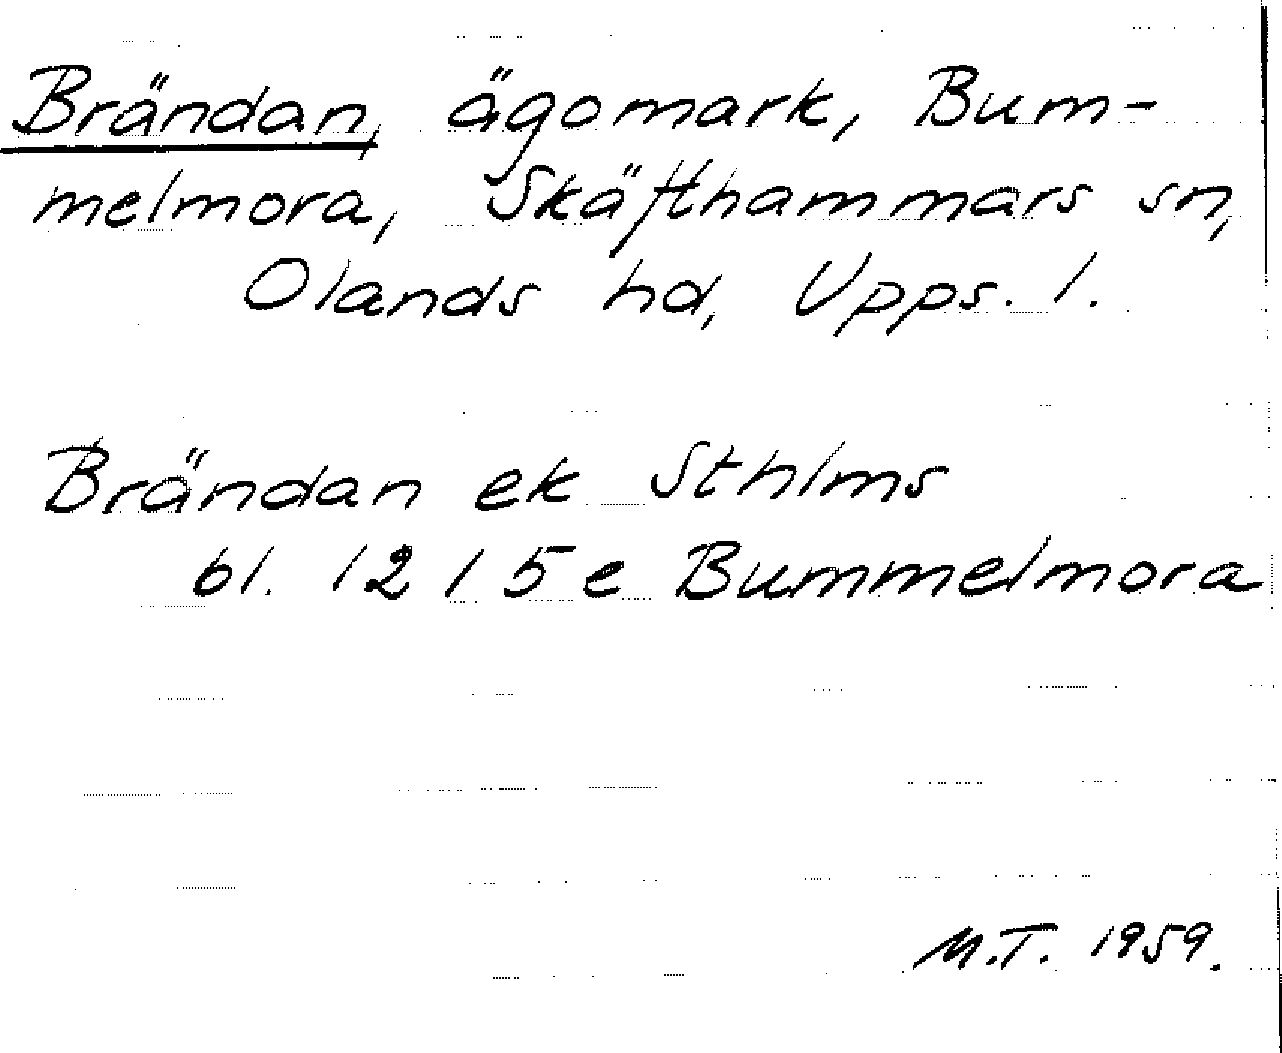 Brändan, ägomark, Bum-
melmora, Skäfthammars sn,
Olands hd, Upps. l.
Brändan ek Sthlms
bl. 12 15 e Bummelmora
M.T. 1959.